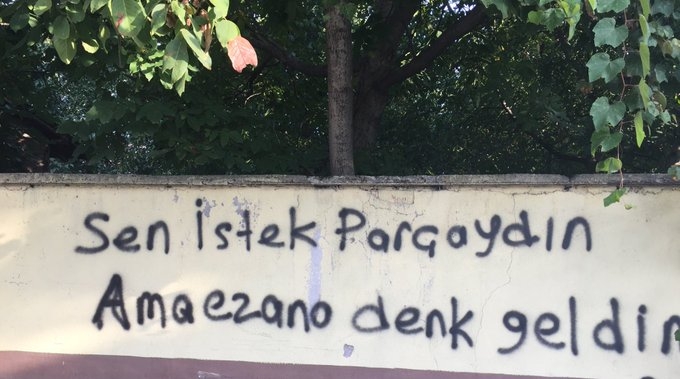 Sen istek Parçaydın
Ama ezano denk geldin